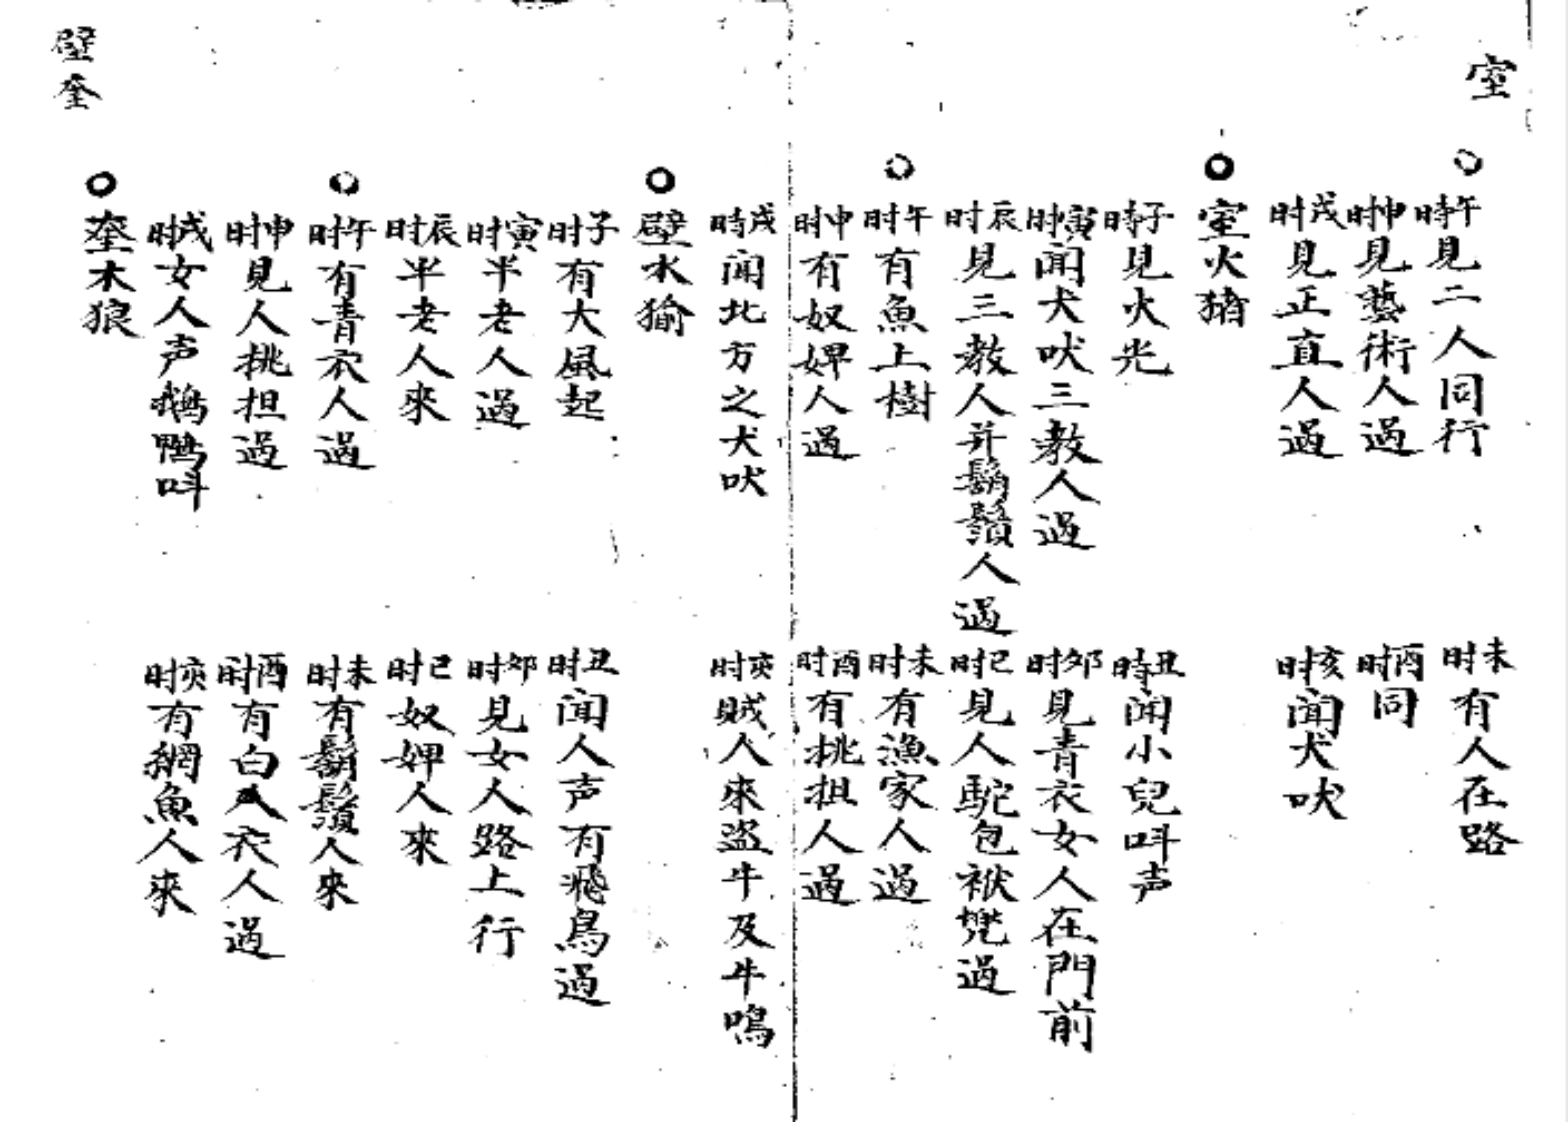 室
午時見二人同行
未时有人在路
申时見藝術人過
酉时同
戌时見正直人過
亥时闻犬吠
室火猪
子時見火光
丑時闻小兒呌声
寅时闻犬吠三教人過
卯时見青衣女人在門前
辰时見三教人并鬍鬚人過
巳时見人駝包袱兠過
午时有魚上樹
未时有漁家人過
申时有奴婢人過
酉时有挑担人過
戌時闻北方之犬吠
亥时賊人來盗牛及牛鳴
壁水㺄
子时有大風起
丑时闻人声有飛鳥過
寅时半老人過
卯时見女人路上行
辰时半老人來
巳时奴婢人來
午时有青衣人過
未时有鬍鬚人來
申时見人挑担過
酉时有白衣人過
戌时女人声鵝鴨呌
亥时有網魚人來
奎木狼
壁奎